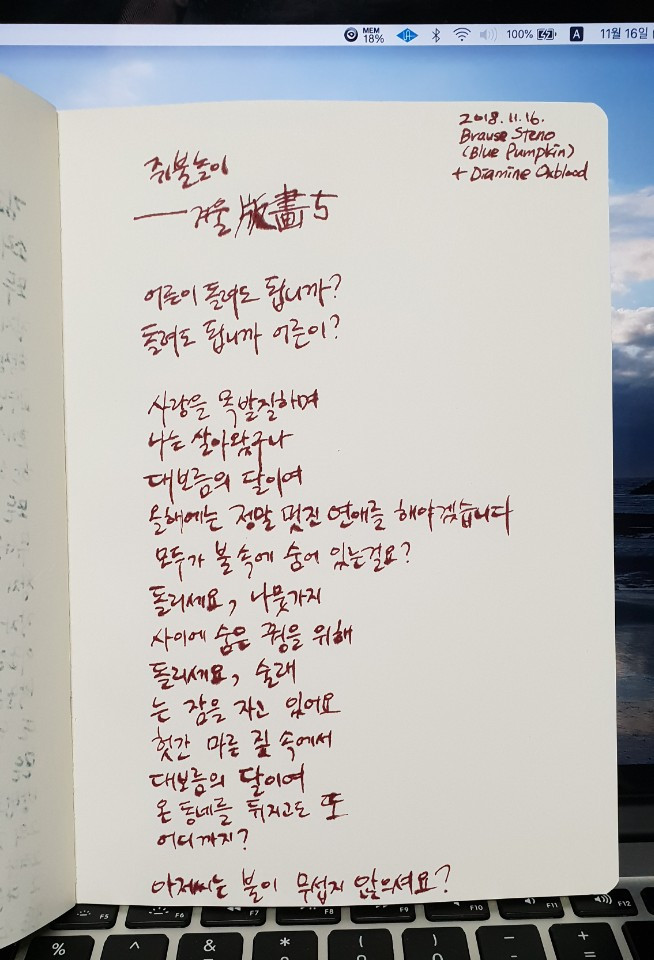 MEM
18%
100%
A
11월 16일
2018. 11. 16.
Brause Steno
(Blue Pumpkin)
+ Diamine Oxblood
쥐불놀이
——겨울 版畵 5
어른이 돌려도 됩니까?
돌려도 됩니까 어른이?
사랑을 목발질하며
나는 살아왔구나
대보름의 달이여
올해에는 정말 멋진 연애를 해야겠습니다
모두가 불 속에 숨어 있는걸요?
돌리세요, 나뭇가지
사이에 숨은 꿩을 위해
돌리세요, 술래
는 잠을 자고 있어요
헛간 마른 짚 속에서
대보름의 달이여
온 동네를 뒤지고도 또
어디까지?
아저씨는 불이 무섭지 않으셔요?
F5
F6
F7
F8
F9
F10
F11
F12
%
^
&
*
(
)